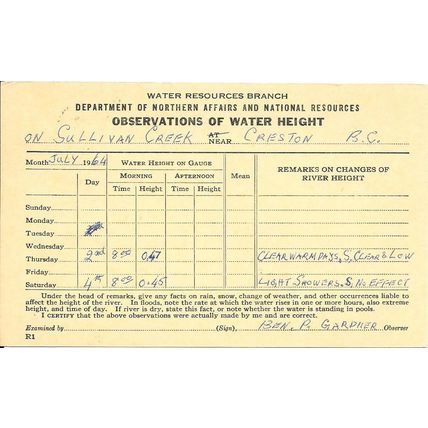 WATER RESOURCES BRANCH
DEPARTMENT OF NORTHERN AFFAIRS AND NATIONAL RESOURCES
OBSERVATIONS OF WATER HEIGHT
ON SULLIVAN CREEK AT NEAR CRESTON B.C.
Month JULY 1964 WATER HEIGHT ON GAUGE
Day MORNING AFTERNOON Mean REMARKS ON CHANGES OF RIVER HEIGHT
Time Height Time Height
Sunday
Monday
Tuesday
Wednesday
Thursday 2nd 8:00 0.47 CLEAR WARM DAYS, S, CLEAR & LOW
Friday
Saturday 4th 8:00 0.45 LIGHT SHOWERS, S, NO EFFECT
Under the head of remarks, give any facts on rain, snow, change of weather, and other occurrences liable to
affect the height of the river. In floods, note the rate at which the water rises in one or more hours, also extreme
height, and time of day. If river is dry, state this fact, or note whether the water is standing in pools.
I CERTIFY that the above observations were actually made by me and are correct.
Examined by (Sign), BEN. P. GARDNER Observer
R1